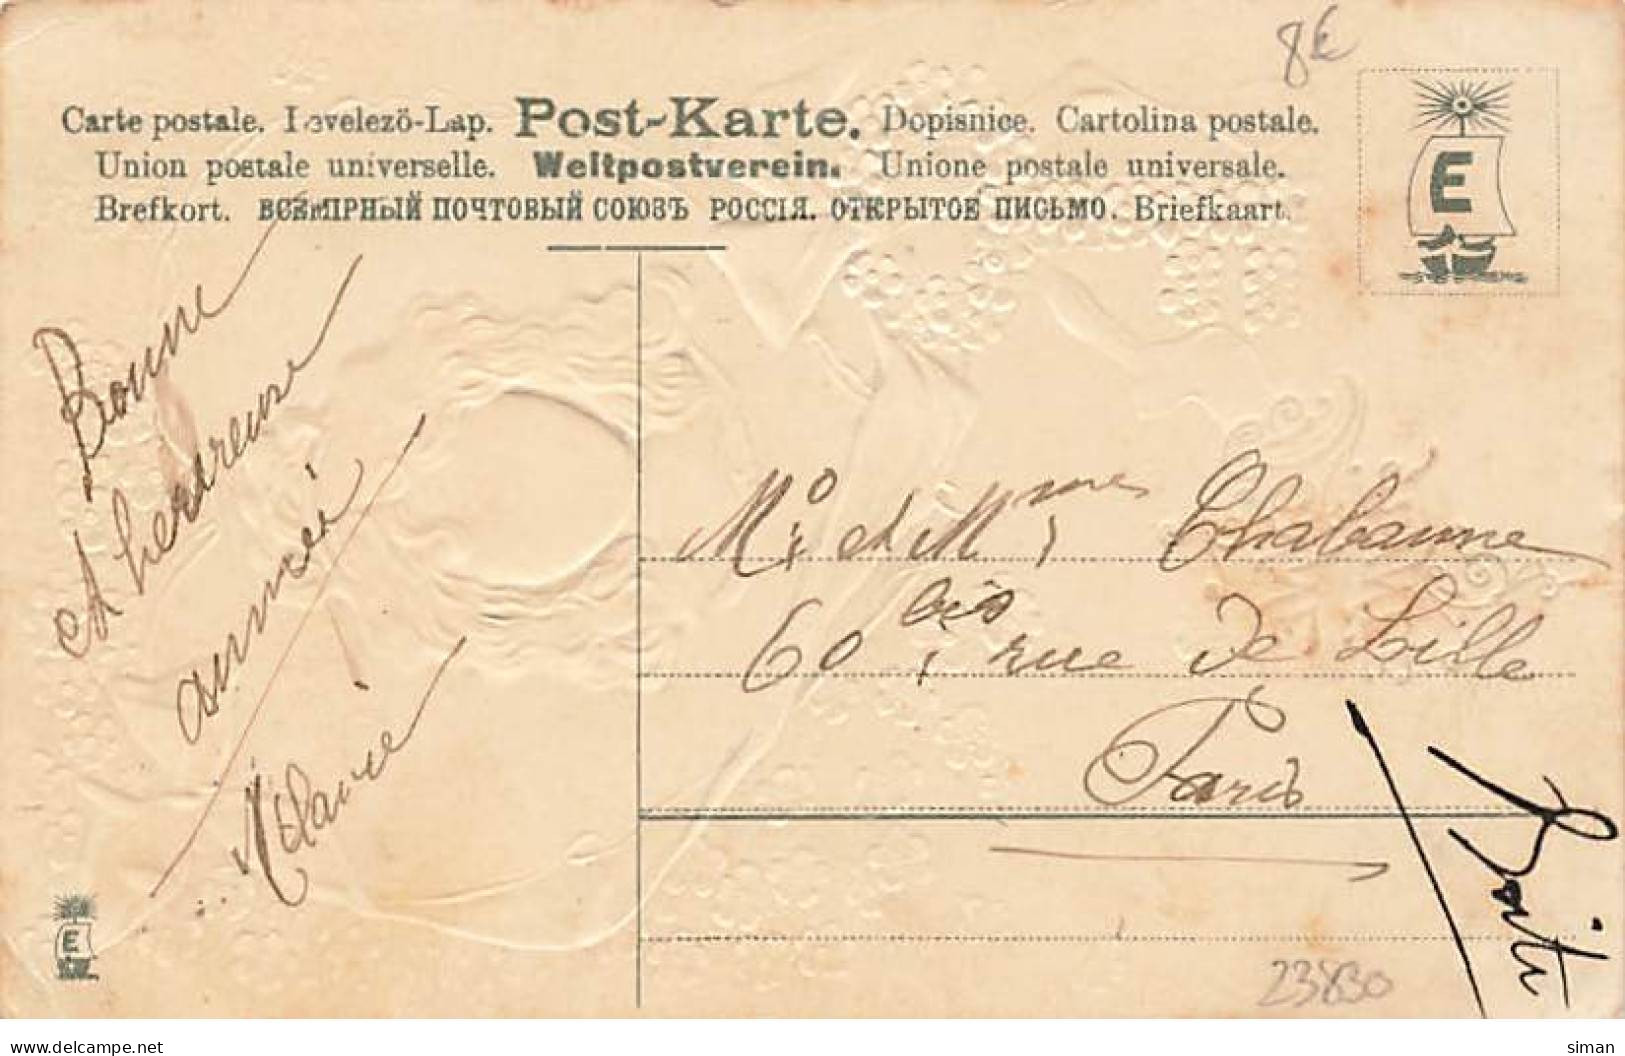 8€
Carte postale. Levelezö-Lap. Post-Karte. Dopisnice. Cartolina postale.
Union postale universelle. Weltpostverein. Unione postale universale.
Brefkort. ВСЕМІРНЫЙ ПОЧТОВЫЙ СОЮЗЪ РОССІЯ. ОТКРЫТОЕ ПИСЬМО. Briefkaart.
E
Bonne
et heureuse
année
Mr et Mme Chabanne
60 bis rue de Lille
Paris
E
23830
www.delcampe.net
siman